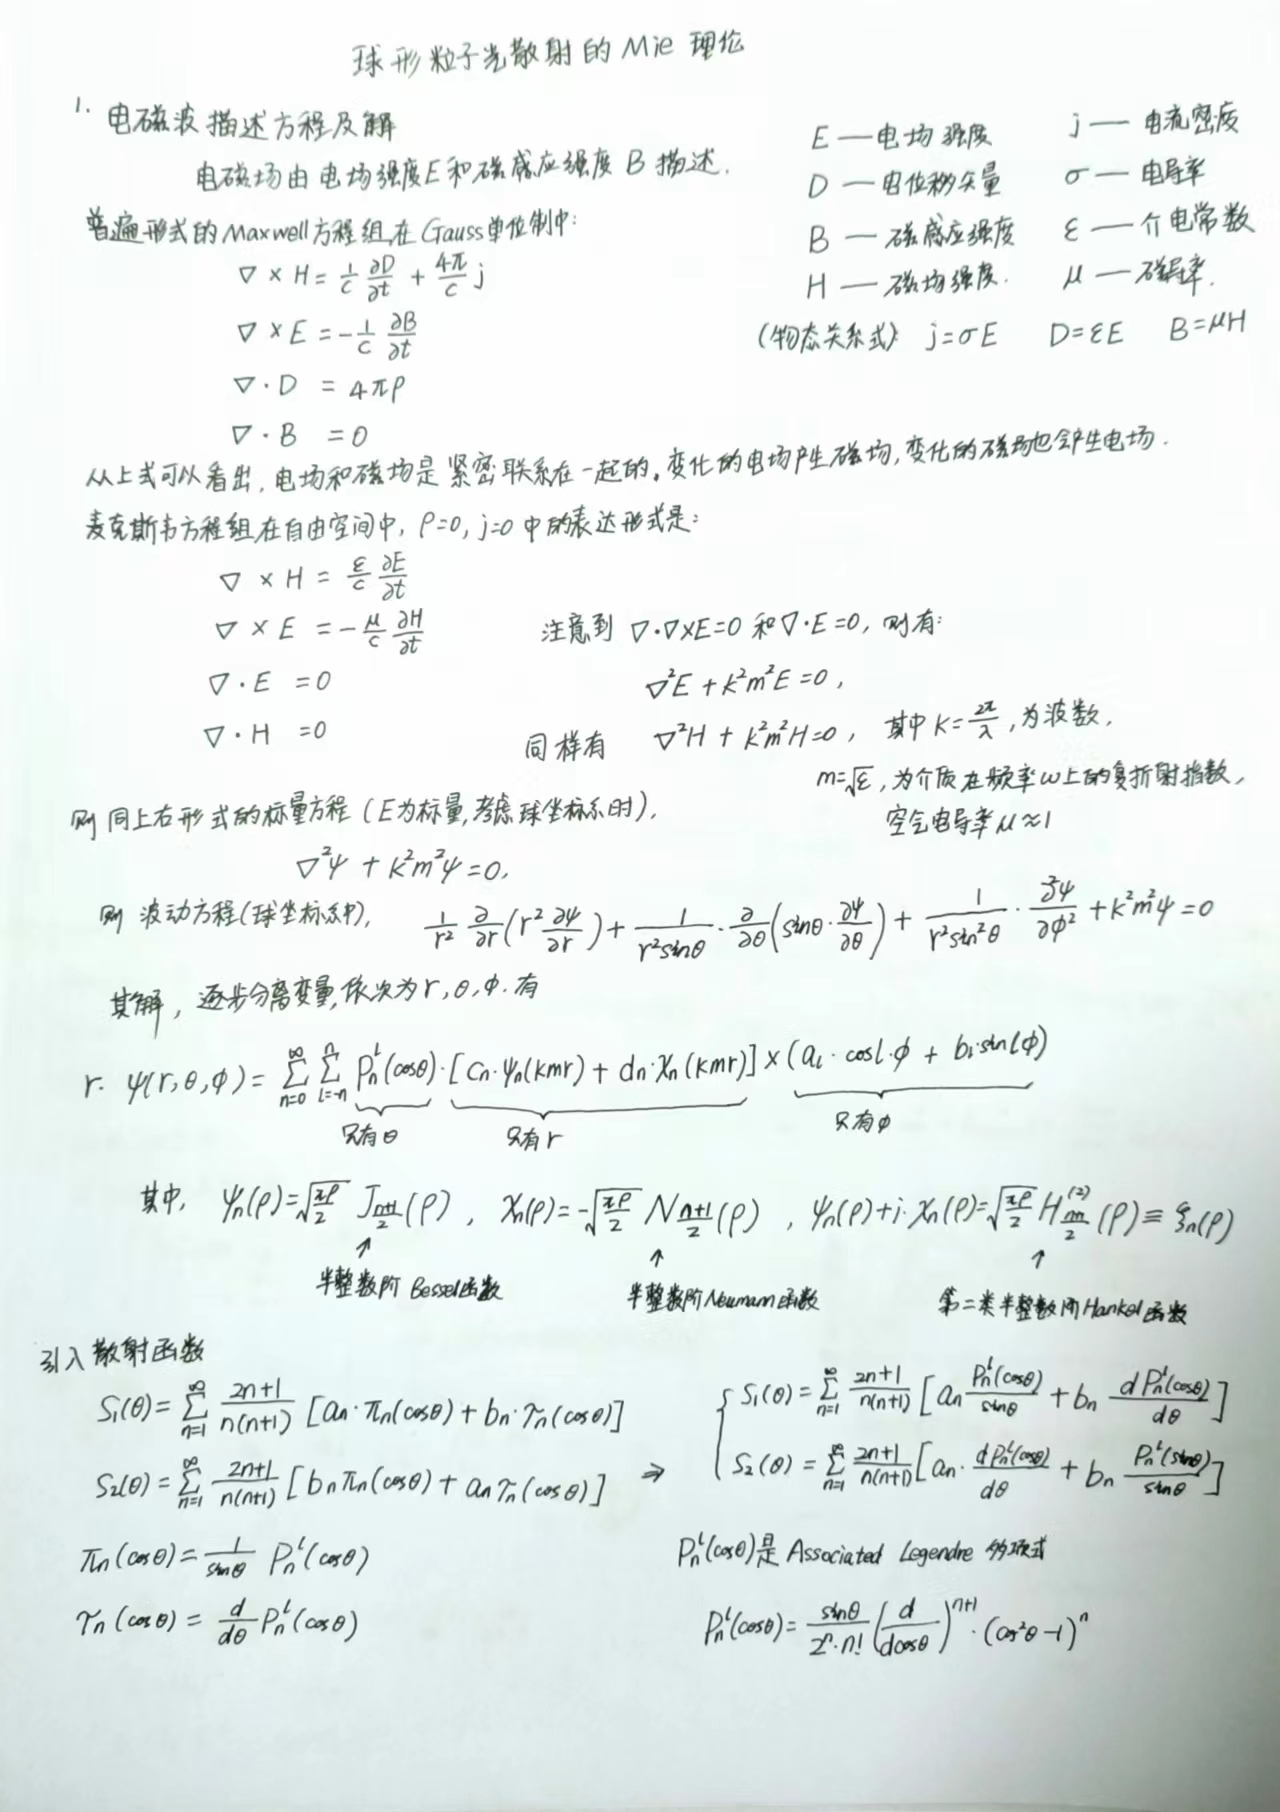 球形粒子光散射的Mie理论
1. 电磁波描述方程及解
电磁场由电场强度E和磁感应强度B描述.
E — 电场强度 j — 电流密度
D — 电位移矢量 σ — 电导率
B — 磁感应强度 ε — 介电常数
H — 磁场强度. μ — 磁导率.
(物态关系式) j=σE D=εE B=μH
普遍形式的Maxwell方程组在Gauss单位制中:
∇ × H = 1/c ∂D/∂t + 4π/c j
∇ × E = -1/c ∂B/∂t
∇ · D = 4πρ
∇ · B = 0
从上式可以看出, 电场和磁场是紧密联系在一起的。变化的电场产生磁场, 变化的磁场也会产生电场.
麦克斯韦方程组在自由空间中, ρ=0, j=0 中的表达形式是:
∇ × H = ε/c ∂E/∂t
∇ × E = -μ/c ∂H/∂t
∇ · E = 0
∇ · H = 0
注意到 ∇·∇×E=0 和 ∇·E=0, 则有:
∇²E + k²m²E = 0,
同样有 ∇²H + k²m²H = 0, 其中 k = 2π/λ, 为波数,
m=√ε, 为介质在频率ω上的复折射指数,
空气电导率μ≈1
则同上右形式的标量方程 (E为标量,考虑球坐标系时),
∇²ψ + k²m²ψ = 0,
则波动方程(球坐标系中), 1/r² ∂/∂r (r² ∂ψ/∂r) + 1/(r²sinθ) · ∂/∂θ (sinθ · ∂ψ/∂θ) + 1/(r²sin²θ) · ∂²ψ/∂φ² + k²m²ψ = 0
其解, 逐步分离变量,依次为r,θ,φ.有
r· ψ(r,θ,φ) = ∑_{n=0}^{∞} ∑_{l=-n}^{n} P_n^l(cosθ)·[c_n·ψ_n(kmr) + d_n·χ_n(kmr)] × (a_l·cosl·φ + b_l·sinlφ)
只有θ 只有r 只有φ
其中, ψ_n(ρ)=√(πρ/2) J_{(n+1)/2}(ρ), χ_n(ρ)=-√(πρ/2) N_{(n+1)/2}(ρ), ψ_n(ρ)+i·χ_n(ρ)=√(πρ/2) H_{(n+1)/2}^{(2)}(ρ)≡ξ_n(ρ)
↑ ↑ ↑
半整数阶Bessel函数 半整数阶Neumann函数 第二类半整数阶Hankel函数
引入散射函数
S₁(θ) = ∑_{n=1}^{∞} (2n+1)/(n(n+1)) [a_n·π_n(cosθ) + b_n·τ_n(cosθ)]
S₂(θ) = ∑_{n=1}^{∞} (2n+1)/(n(n+1)) [b_nπ_n(cosθ) + a_nτ_n(cosθ)] ⇒
{ S₁(θ) = ∑_{n=1}^{∞} (2n+1)/(n(n+1)) [a_n P_n^l(cosθ)/sinθ + b_n dP_n^l(cosθ)/dθ]
S₂(θ) = ∑_{n=1}^{∞} (2n+1)/(n(n+1)) [a_n · dP_n^l(cosθ)/dθ + b_n P_n^l(sinθ)/sinθ]
π_n(cosθ) = 1/sinθ P_n^l(cosθ)
τ_n(cosθ) = d/dθ P_n^l(cosθ)
P_n^l(cosθ)是 Associated Legendre 多项式
P_n^l(cosθ) = sinθ/(2ⁿ·n!) (d/dcosθ)^{n+1} · (cos²θ-1)ⁿ